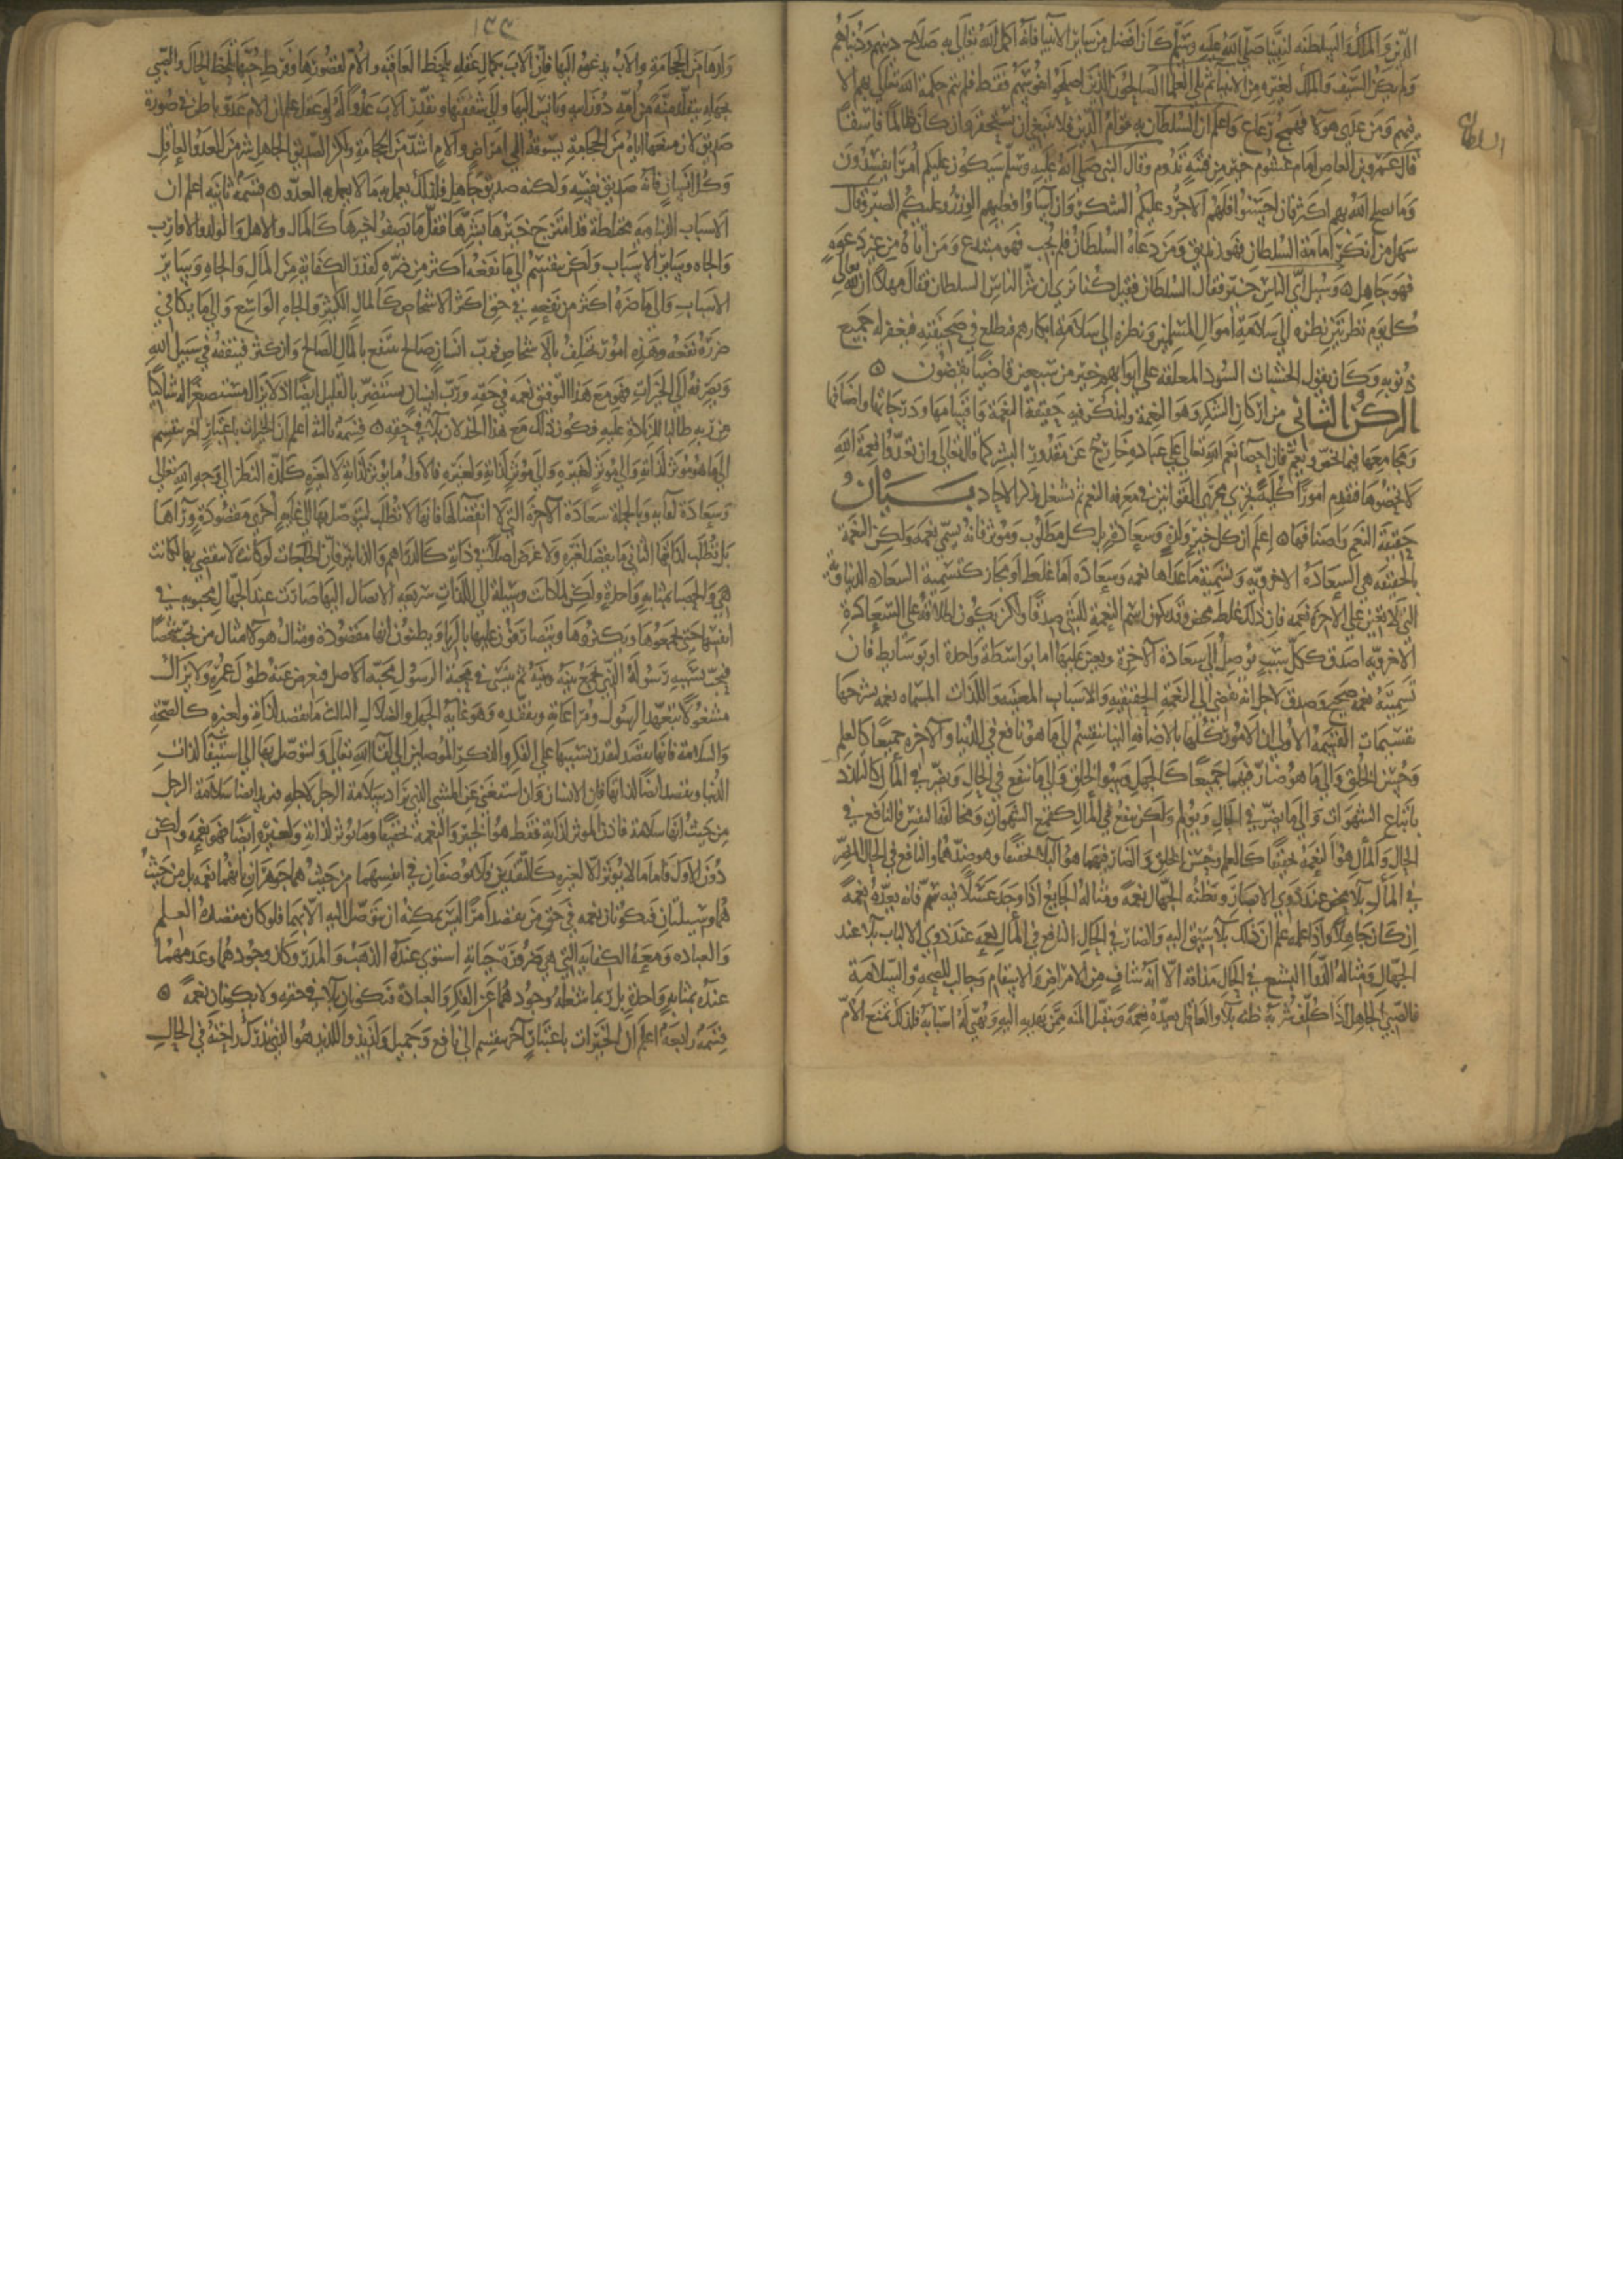 الدين والملك والسلطنة لنبينا صلى الله عليه وسلم كان افضل من ساير الانبيا فانه اكمل الله تعالى به صلاح دينهم ودنياهم
ولم يكن السيف والملك لغيره من الانبيا ثم يلي العلما الصالحون الذين اصلحوا نفوسهم فقط فلم يتم حكمة الله تعالى بهم الا
فيهم ومن عدى هولا فهمج رعاع واعلم ان السلطان به قوام الدين فلا ينبغي ان يستحقر وان كان ظالما فاسقا
السلطان
قال عمرو بن العاص امام غشوم خير من فتنة تدوم وقال النبي صلى الله عليه وسلم سيكون عليكم امرا يفسدون
وما يصلح الله بهم اكثر فان احسنوا فلهم الاجر وعليكم الشكر وان اساوا فعليهم الوزر وعليكم الصبر وقال
سهل من انكر امامة السلطان فهو زنديق ومن دعاه السلطان فلم يجب فهو مبتدع ومن اتاه من غير دعوة
فهو جاهل ه وسيل اي الناس خير فقال السلطان فقيل كنا نرى ان شر الناس السلطان فقال مهلا ان لله تعالى
كل يوم نظرتين نظره الى سلامة اموال المسلمين ونظره الى سلامة ابكارهم فيطلع في صحيفته فيغفر له جميع
ذنوبه وكان يقول الخشبات السود المعلقة على ابوابهم خير من سبعين قاضيا يقضون ه
الركن الثاني من اركان الشكر وهو النعمة ولنذكر فيه حقيقة النعمة واقسامها ودرجاتها واصنافها
ومجامعها فيما يخص ويعم فان احصا نعم الله تعالى على عباده خارج عن مقدور البشر كما قال تعالى وان تعدوا نعمة الله
لا تحصوها فنقدم امورا كلية تجري مجرى القوانين في معرفة النعم ثم نشتغل بذكر الاحاد بيان
حقيقة النعم واصنافها ه اعلم ان كل خير ولذة وسعادة بل كل مطلوب وموثر فانه يسمى نعمة ولكن النعمة
بالحقيقة هي السعادة الاخروية وتسمية ما عداها نعمه وسعاده اما غلط او مجاز كتسمية السعاده الدنياوية
التي لا تعين على الاخرة نعمه فان ذلك غلط محض وقد يكون اسم النعمة للشي صدقا ولكن يكون اطلاقه على السعادة
الاخروية اصدق فكل سبب يوصل الى سعادة الاخرة ويعين عليها اما بواسطة واحدة او بوسايط فان
تسميته نعمة صحيح وصدق لاجل انه يفضي الى النعمة الحقيقيه والاسباب المعينه واللذات المسماه نعمه نشرحها
بتقسيمات القسمة الاولى ان الامور كلها بالاضافه الينا تنقسم الى ما هو نافع في الدنيا والاخره جميعا كالعلم
وحسن الخلق والى ما هو ضار فيهما جميعا كالجهل وسوء الخلق والى ما ينفع في الحال ويضر في المال كالتلذذ
باتباع الشهوات والى ما يضر في الحال ويولم ولكن ينفع في المال كقمع الشهوات ومخالفة النفس فالنافع في
الحال والمال هو النعمة تحقيقا كالعلم وحسن الخلق والضار فيهما هو البلا تحقيقا وهو ضدهما والنافع في الحال المضر
في المال بلا محض عند ذوي الابصار وتظنه الجهال نعمة ومثاله الجايع اذا وجد عسلا فيه سم فانه يعده نعمة
ان كان جاهلا واذا علمه علم ان ذلك بلا سيق اليه والضار في الحال النافع في المال نعمة عند ذوي الالباب بلا عند
الجهال ومثاله الدوا البشع في الحال مذاقه الا انه شاف من الامراض والاسقام وجالب للصحة والسلامة
فالصبي الجاهل اذا كلف شربه ظنه بلا والعاقل يعده نعمة ويتقلد المنه ممن يهديه اليه ويهيي له اسبابه فلذلك تمنع الام
١٣٣
ولدها من الحجامة والاب يدعوه اليها فان الاب بكمال عقله يلحظ العاقبة والام لقصورها وفرط حبها تلحظ الحال والصبي
بجهله يتقلد منة من امه دون ابيه ويانس اليها والى شفقتها ويقدر الاب عدوا له ولو عقل علم ان الام عدو باطن في صورة
صديق لان منعها اياه من الحجامة يسوقه الى امراض والام اشد من الحجامة ولكن الصديق الجاهل شر من العدو العاقل
وكل انسان فانه صديق نفسه ولكنه صديق جاهل فلذلك يعمل به ما لا يعمل به العدو ه قسمة ثانيه اعلم ان
الاسباب الدنياوية مختلطة قد امتزج خيرها بشرها فقل ما يصفوا خيرها كالمال والاهل والولد والاقارب
والجاه وساير الاسباب ولكن تنقسم الى ما نفعه اكثر من ضره كقدر الكفاية من المال والجاه وساير
الاسباب والى ما ضره اكثر من نفعه في حق اكثر الاشخاص كالمال الكثير والجاه الواسع والى ما يكافي
ضرره نفعه وهذه امور تختلف بالاشخاص فرب انسان صالح ينتفع بالمال الصالح وان كثر فينفقه في سبيل الله
ويصرفه الى الخيرات فهو مع هذا التوفيق نعمه في حقه ورب انسان يستضر بالقليل ايضا اذ لا يزال مستصغرا له شاكيا
من ربه طالبا للزيادة عليه فيكون ذلك مع هذا الخذلان بلا في حقه ه قسمة ثالثة اعلم ان الخيرات باعتبار اخر تنقسم
الى ما هو موثر لذاته والى موثر لغيره والى موثر لذاته ولغيره فالاول ما يوثر لذاته لا لغيره كلذة النظر الى وجه الله تعالى
وسعادة لقايه وبالجملة سعادة الاخرة التي لا انقضا لها فانها لا تطلب ليتوصل بها الى غاية اخرى مقصودة وراها
بل تطلب لذاتها الثاني ما يقصد لغيره ولا غرض اصلا في ذاته كالدراهم والدنانير فان الحاجات لو كانت لا تنقضي بها لكانت
هي والحصبا بمثابة واحدة ولكن لما كانت وسيلة الى اللذات سريعة الايصال اليها صارت عند الجهال محبوبة في
انفسها حتى يجمعوها ويكنزوها ويتصارفون عليها بالربا ويظنون انها مقصودة ومثال هولا مثال من يحب شخصا
فيحب بسببه رسوله الذي يجمع بينه وبينه ثم ينسى في محبة الرسول محبة الاصل فيعرض عنه طول عمره ولا يزال
مشغولا بتعهد الرسول ومراعاته وتفقده وهو غاية الجهل والضلال الثالث ما يقصد لذاته ولغيره كالصحة
والسلامة فانها تقصد ليقدر بسببها على الفكر والذكر الموصلين الى لقا الله تعالى وليتوصل بها الى استيفا لذات
الدنيا وتقصد ايضا لذاتها فان الانسان وان استغنى عن المشي الذي تراد سلامة الرجل لاجله فيريد ايضا سلامة الرجل
من حيث انها سلامة فاذن الموثر لذاته فقط هو الخير والنعمة تحقيقا وما يوثر لذاته ولغيره ايضا فهو نعمه ولكن
دون الاول فاما ما لا يوثر الا لغيره كالنقدين فلا يوصفان في انفسهما من حيث هما جوهران بانهما نعمه بل من حيث
هما وسيلتان فيكونان نعمه في حق من يقصد امرا ليس يمكنه ان يتوصل اليه الا بهما فلو كان مقصده العلم
والعباده ومعه الكفاية التي هي ضرورة حياته استوى عنده الذهب والمدر وكان وجودهما وعدمهما
عنده بمثابة واحدة بل ربما شغله وجودهما عن الفكر والعبادة فيكونان بلا في حقه ولا يكونان نعمة ه
قسمة رابعة اعلم ان الخيرات باعتبار اخر تنقسم الى نافع وجميل ولذيذ واللذيذ هو الذي تدرك راحته في الحال